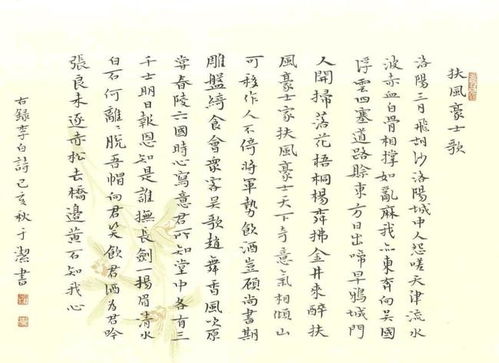 扶風豪士歌
洛陽三月飛胡沙洛陽城中人怨嗟天津流水
波赤血白骨相撐如亂麻我亦東奔向吳國
浮雲四塞道路賒東方日出啼早鴉城門
人開掃落花梧桐楊拂金井來醉扶
風豪士家扶風豪士天下奇意氣相傾山
可移作人不倚將軍勢飲酒豈顧尚書期
雕盤綺食會眾客吳歌趙舞香風吹原
嘗春陵六國時心寫意君所知堂中各有三
千士明日報恩知是誰撫長劍一揚眉清水
白石何離〻脫吾帽向君笑飲君酒為君吟
張良未逐赤松去橋邊黃石知我心
右錄李白詩己亥秋于潔書